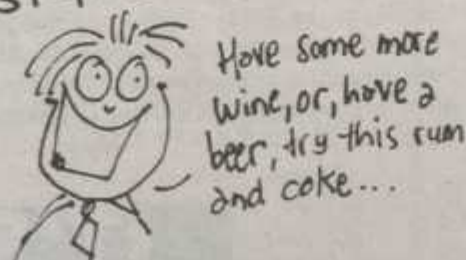 Have some more
wine, or, have a
beer, try this rum
and coke...